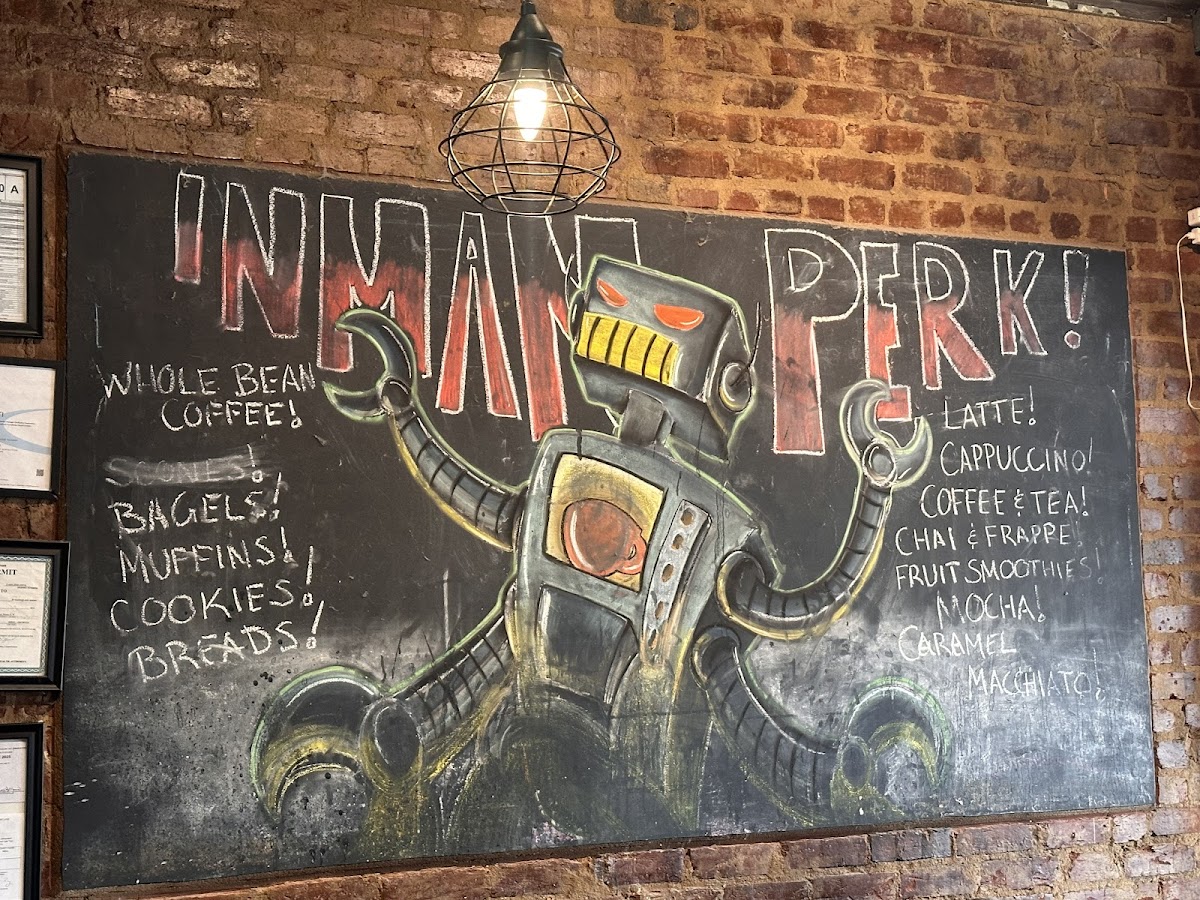 INMAN PERK!
WHOLE BEAN
COFFEE!
SCONES!
BAGELS!
MUFFINS!
COOKIES!
BREADS!
LATTE!
CAPPUCCINO!
COFFEE & TEA!
CHAI & FRAPPE!
FRUIT SMOOTHIES!
MOCHA!
CARAMEL
MACCHIATO!